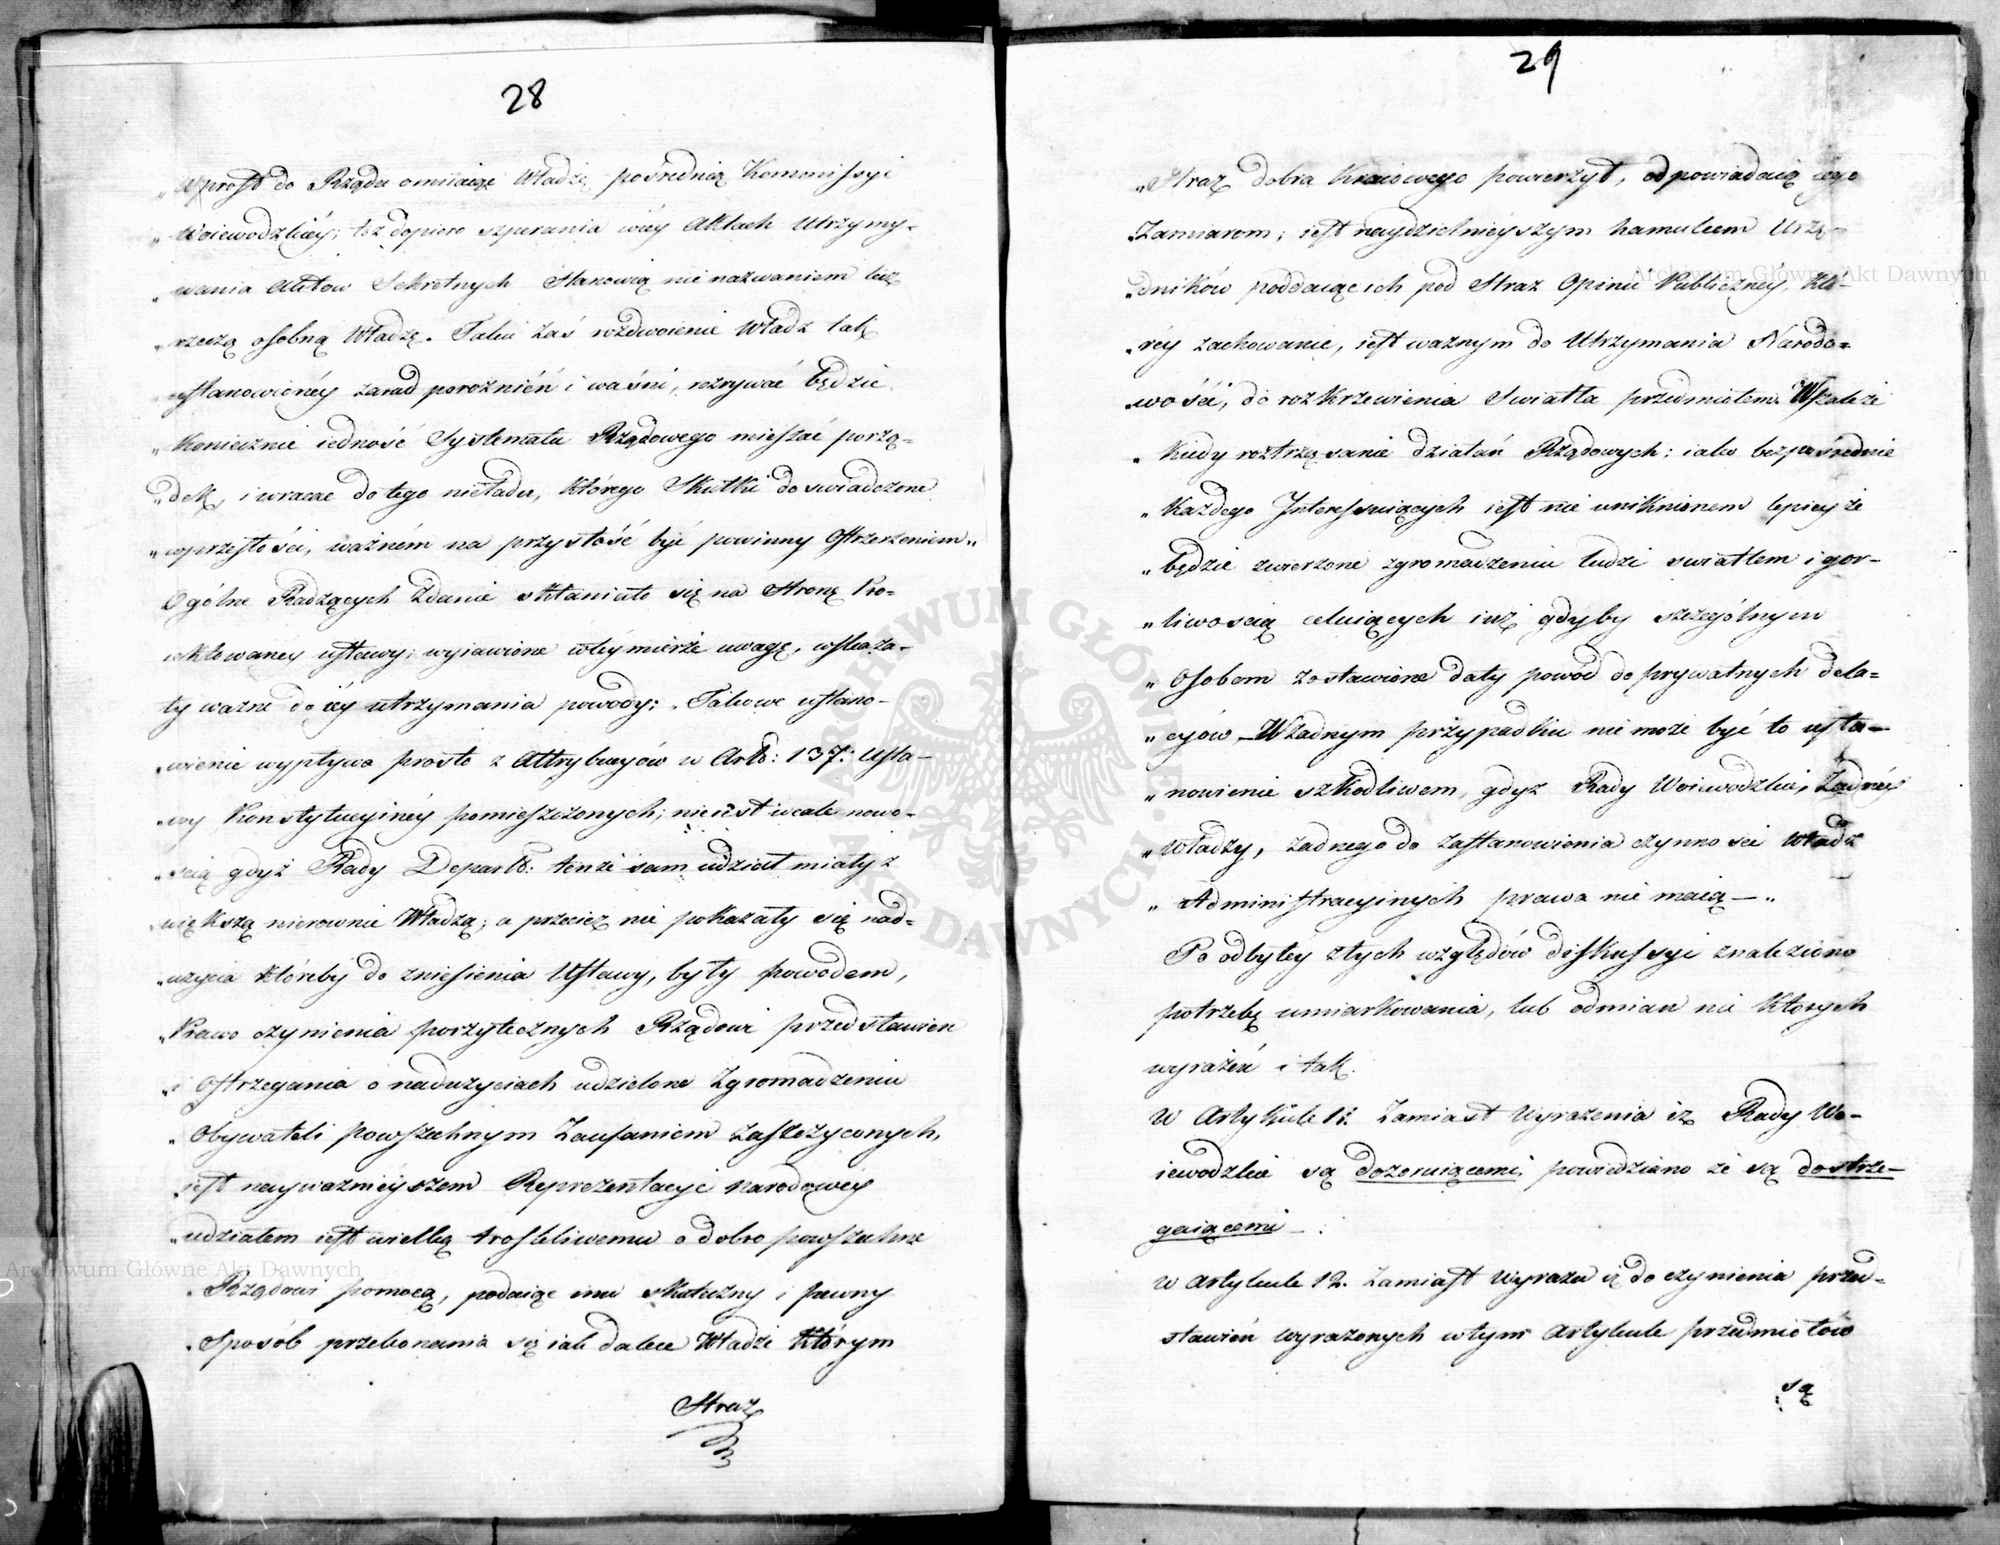 28
„Wprost do Rządu omiiaiąc Władzę pośrednią Kommissyi
„Woiewodzkiéy; toż dopiero szperania wiéy Aktach Utrzymy-
„wania Aktow Sekretnych Stanowią nie nazwaniem lecz
„rzeczą osobną Władzę. Takie zaś rozdwoienie Władz tak
„ustanowionéy zarad poróżnień i waśni, rozrywać będzie
„Koniecznie iedność Systematu Rządowego mieszać porzą-
„dek, i wracać do tego nieładu, którego Skutki doswiadczone
„wprzeszłości, ważném na przyszłość być powinny Ostrzeżeniem„
Ogólne Radzących Zdanie skłaniało się na Stronę Pro-
iektowaney ustawy; wyiawione wtéy mierze uwagi, wskaza-
ły ważne do iéy utrzymania powody; „Takowe ustano-
„wienie wypływa prosto z Attrybucyów w Artł: 137: Usta-
„wy Konstytucyinéy pomieszczonych; nie iest wcale nowo-
„ścią gdyż Rady Departł: tenże sam udział miały z
„większą nierownie Władzą; a przecież nie pokazały się nad-
„użycia któreby do zniesienia Ustawy, były powodem,
„Prawo czynienia pożytecznych Rządowi przedstawień
„i Ostrzegania o nadużyciach udzielone Zgromadzeniu
„Obywateli powszechnym Zaufaniem Zaszczyconych,
„iest nayważniéyszem Reprezentacyi narodowéy
„udziałem iest wielką troskliwemu o dobro powszechne
„Rządowi pomocą, podaiąc mu skuteczny i pewny
„Sposób przekonania się iak dalece Władze którym
Straż
29
„Straż dobra Kraiowego powierzył, odpowiadaią iego
„Zamiarom; iest naydzielnieyszym hamulcem Urzę-
„dników poddaiąc ich pod Straż Opinii Publicznéy, któ-
„réy zachowanie, iest ważnym do Utrzymania Narodo-
„wości, do rozkrzewienia Swiatła przedmiotem. Wszakże
„Kiedy roztrząsanie działań Rządowych; iako bezpośrednie
„Każdego Interessuiących iest nie uniknionem lepiey że
„będzie zwierzone zgromadzeniu ludzi swiatłem i gor-
„liwością celuiących niż gdyby szczególnym
„Osobom zostawione dały powód do prywatnych dela-
„cyów – Wżadnym przypadku nie może być to usta-
„nowienie szkodliwem, gdyż Rady Woiewodzkie, Żadnéy
„Władzy, żadnego do Zastanowienia czynności Władz
„Administracyinych prawa nie maią – „
Po odbytéy ztych względów diskussyi znaleziono
potrzebę umiarkowania, lub odmian nie których
wyrażeń i tak.
W Artykule 1: Zamiast Wyrażenia iż Rady Wo-
iewodzkie są dozoruiącemi, powiedziano że są dostrze-
gaiącemi – .
W Artykule 12. Zamiast Wyrazu są do czynienia przed-
stawień wyrażonych wtym Artykule przedmiotów
są